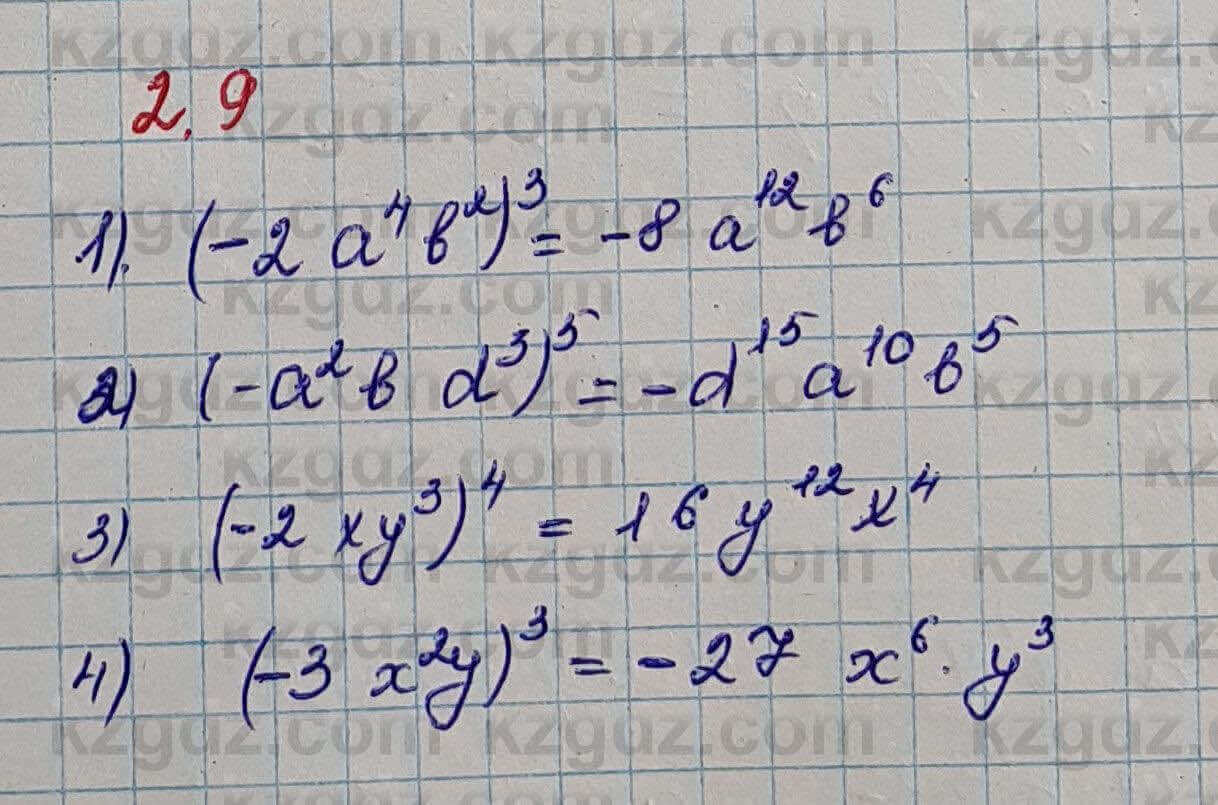 2.9
1). (-2 a⁴ b²)³ = -8 a¹² b⁶
2) (-a² b d³)⁵ = -d¹⁵ a¹⁰ b⁵
3) (-2 xy³)⁴ = 16 y¹² x⁴
4) (-3 x²y)³ = -27 x⁶ · y³
kzgdz.com